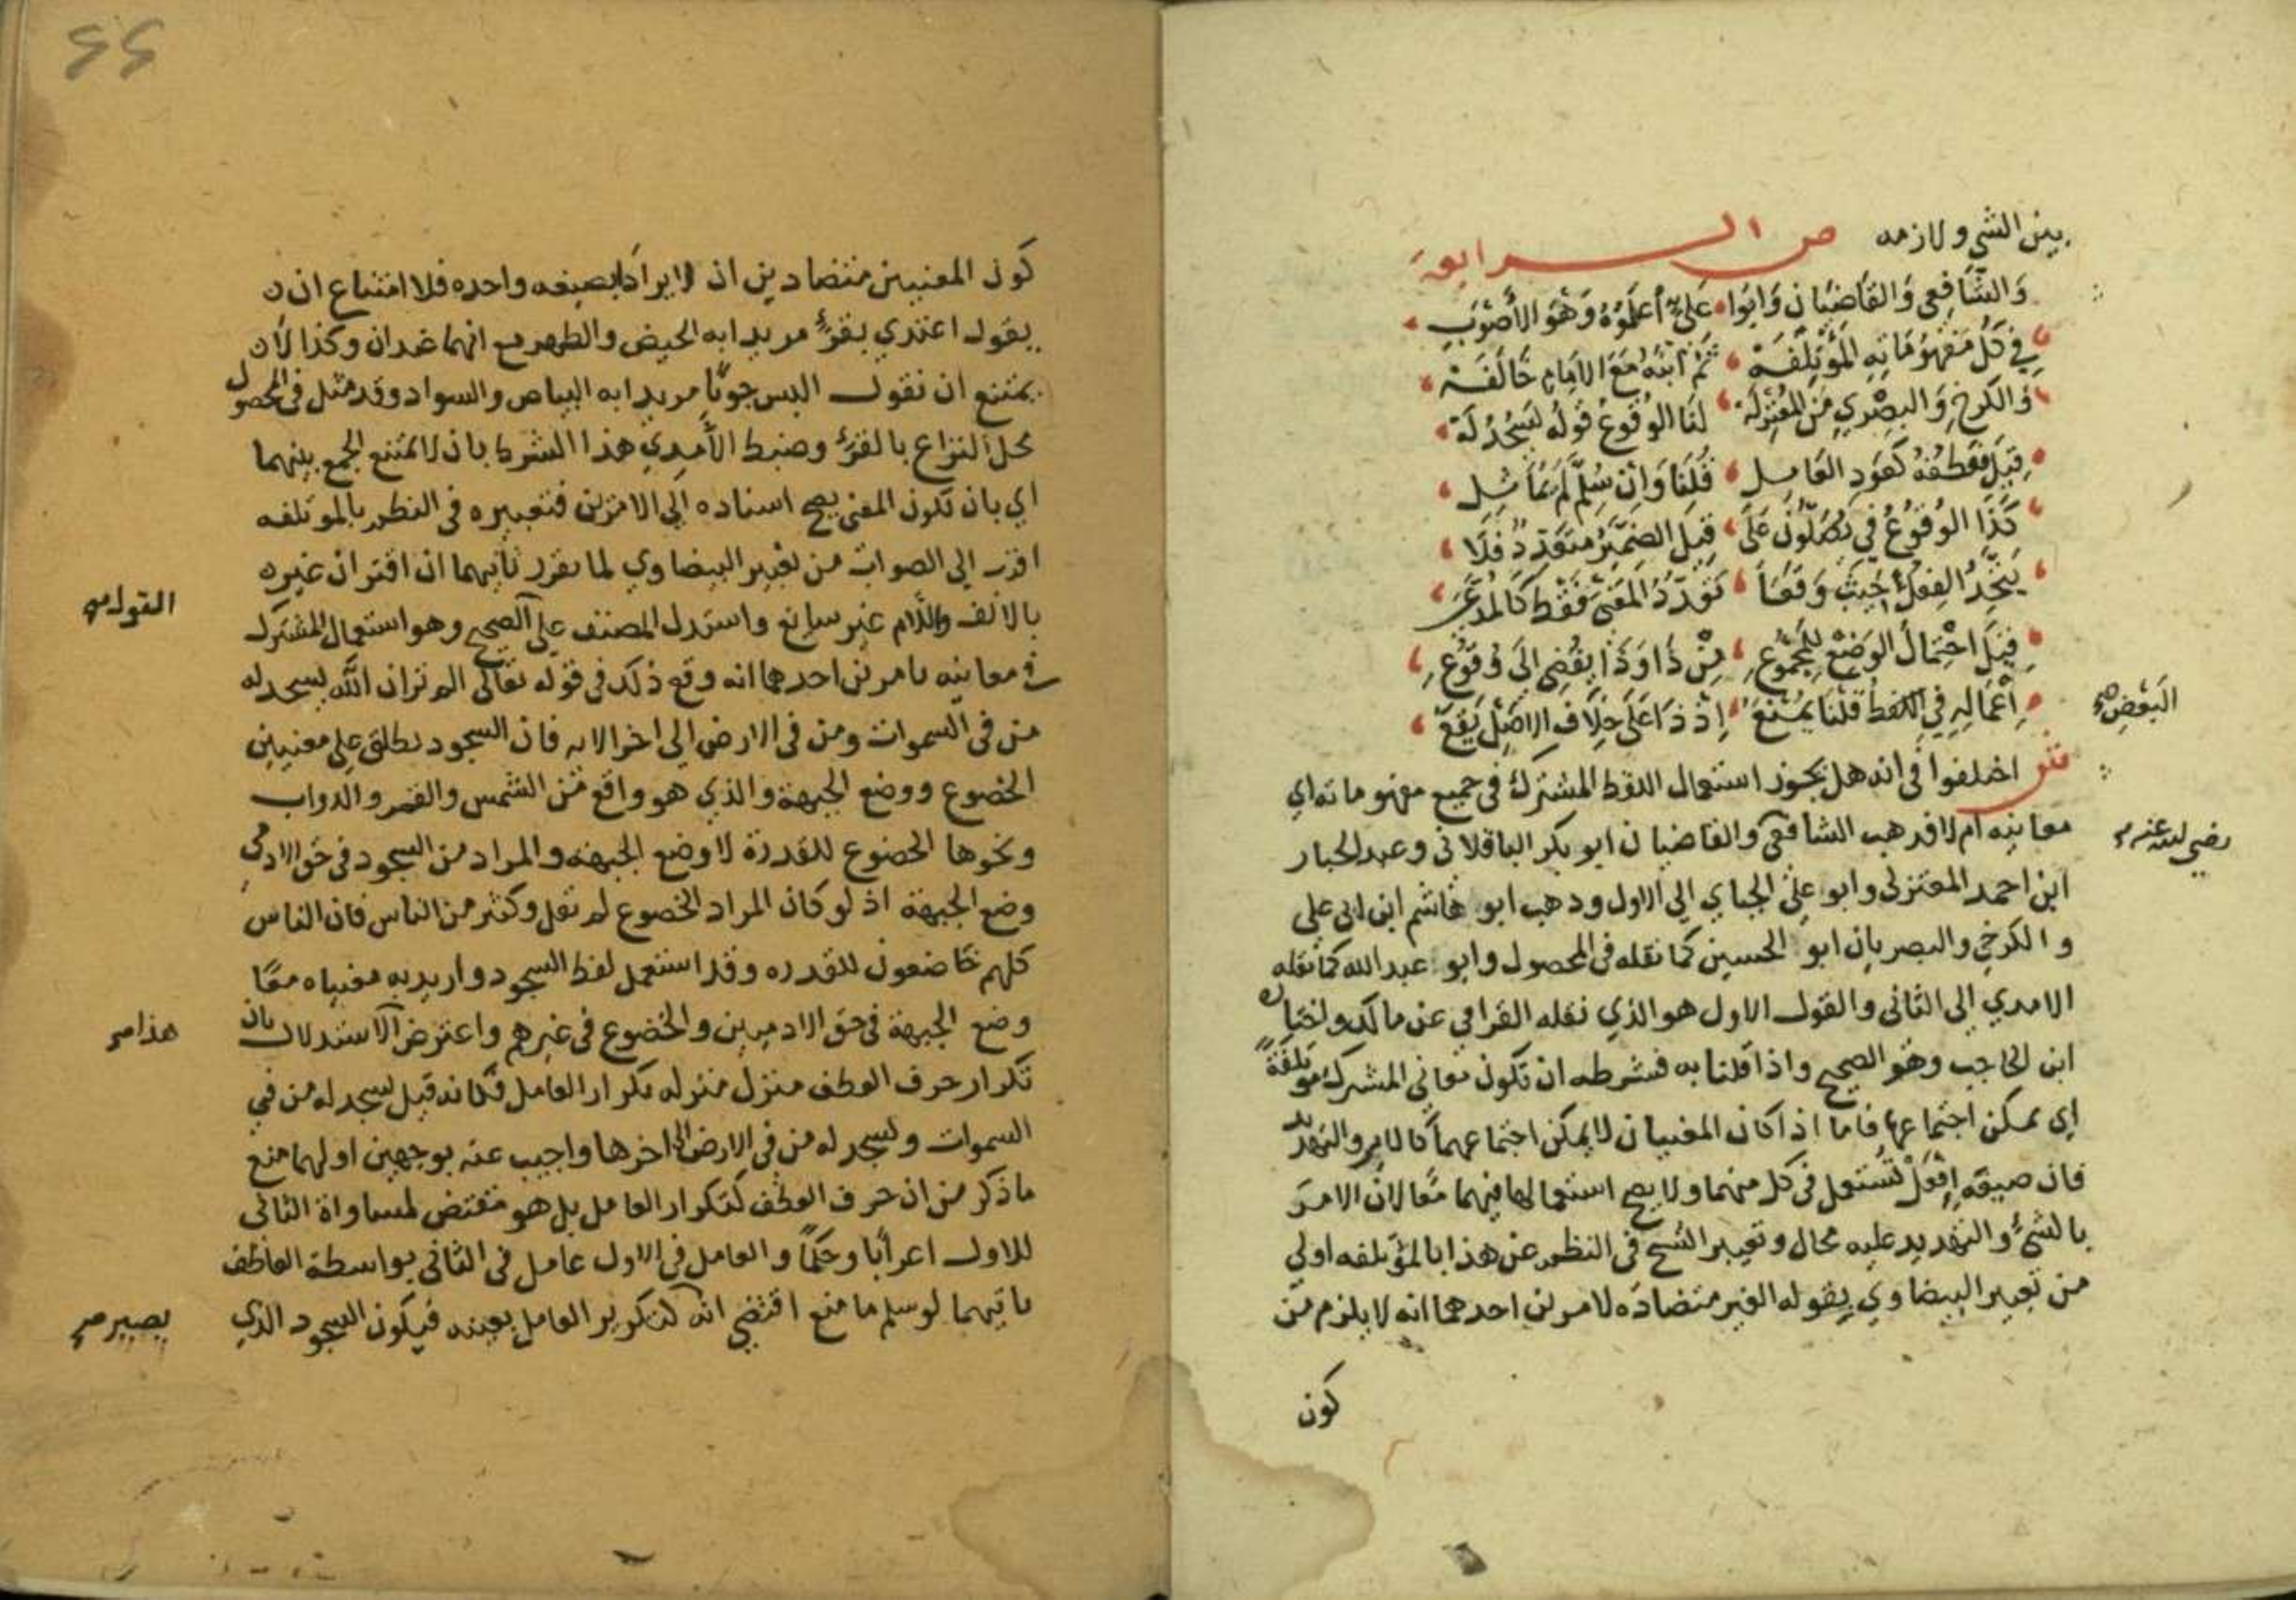 بين الشي ولازمه ص الرابعة
وَالشَّافِعِي وَالقَاضِيَانِ وَابُوا عَلِيٍّ أعْلَمُوهُ وَهْوَ الأَصْوَبُ
فِي كُلِّ مَفْهُومَاتِهِ المُؤْتَلِفَهْ ثُمَّ ابْنُهُ مَعَ الإِمَامِ خَالَفَهْ
وَالكَرْخِ وَالبصْرِي مِنَ المُعْتَزِلَهْ لَنَا الوُقُوعُ قَولُهُ يَسْجُدُ لَهْ
قِيلَ فَعَطْفُهُ كَعَوْدِ العَامِلِ قُلْنَا وَاِنْ سُلِّمَ لَمْ يُمَاثِلِ
كَذَا الوُقُوعُ فِي يُصَلُّونَ عَلَى قِيلَ الضَّمِيرُ مُتَعَدِّدٌ فَلَا
يَتَّحِدُ الفِعْلُ أُجِيبَ وَقَعَا تَعَدُّدُ المَعْنَى فَقَطْ كَالمُدَّعَى
قِيلَ احْتِمَالُ الوَضْعِ لِلْمَجْمُوعِ مِنْ ذَا وَذَا يُفْضِي اِلَى وُقُوعِ
اِعْمَالِهِ فِي اللَّفظ قُلْنَا يَمْتَنِعْ اِذْ ذَا عَلَى خِلَافِ الاَصْلِ يَقَعْ
البَعْضِ صح
ش اختلفوا في انه هل يجوز استعمال اللفظ المشترك في جميع مفهوماته اي
معانيه ام لا فذهب الشافعي والقاضيان ابو بكر الباقلاني وعبد الجبار
رضي الله عنه صح
ابن احمد المعتزلي وابو علي الجباي الي الاول وذهب ابو هاشم ابن ابي علي
والكرخي والبصريان ابو الحسين كما نقله في المحصول وابو عبد الله كما نقله
الامدي الي الثاني والقول الاول هو الذي نقله القرافي عن مالك واختاره
ابن الحاجب وهو الصحيح واذا قلنا به فشرطه ان تكون معاني المشترك مؤتلفة
اي يمكن اجتماعها فاما اذا كان المعنيان لا يمكن اجتماعهما كالامر والتهديد
فان صيغة اِفْعَلْ تُستعمل في كل منهما ولا يصح استعمالها فيهما معًا لان الامر
بالشئ والتهديد عليه محال وتعبير الشيخ في النظم عن هذا بالمؤتلفه اولي
من تعبير البيضاوي بقوله الغير متضاده لامرين احدهما انه لا يلزم من
كون
كون المعنيين متضادين ان لا يرادا بصيغه واحده فلا امتناع ان
يقول اعتدي بقرءٍ مريدا به الحيض والطهر مع انهما ضدان وكذا لا
يمتنع ان نقول البس جونًا مريدا به البياض والسواد وقد مثل في المحصول
محل النزاع بالقرء وضبط الآمدي هذا الشرط بان لا يمتنع الجمع بينهما
اي بان تكون المعنى يصح اسناده الي الامرين فتعبيره في النظم بالموتلفه
اقرب الي الصواب من تعبير البيضاوي لما تقرر ثانيهما ان اقتران غيره
بالالف واللام غير سايغ واستدل المصنف علي الصحيح وهو استعمال المشترك
القول صح
في معانيه بامرين احدهما انه وقع ذلك في قوله تعالى الم تر ان الله يسجد له
من في السموات ومن في الارض الي اخر الايه فان السجود يطلق علي معنيين
الخضوع ووضع الجبهة والذي هو واقع من الشمس والقمر والدواب
ونحوها الخضوع للقدرة لا وضع الجبهه والمراد من السجود في حق الادمي
وضع الجبهة اذ لو كان المراد الخضوع لم تقل وكثير من الناس فان الناس
كلهم خاضعون للقدره وقد استعمل لفظ السجود واريد به معنياه معًا
وضع الجبهة في حق الادميين والخضوع في غيرهم واعترض الاستدلال بان
هذا صح
تكرار حرف العطف منزل منزله تكرار العامل فكانه قيل يسجد له من في
السموات ويسجد له من في الارض الي اخرها واجيب عنه بوجهين اولهما منع
ما ذكر من ان حرف العطف كتكرار العامل بل هو مقتض لمساواة الثاني
للاول اعرابًا وحكمًا والعامل في الاول عامل في الثاني بواسطة العاطف
ثانيهما لو سلم ما منع اقتضي انه كتكرير العامل بعينه فيكون السجود الذي
يصير صح